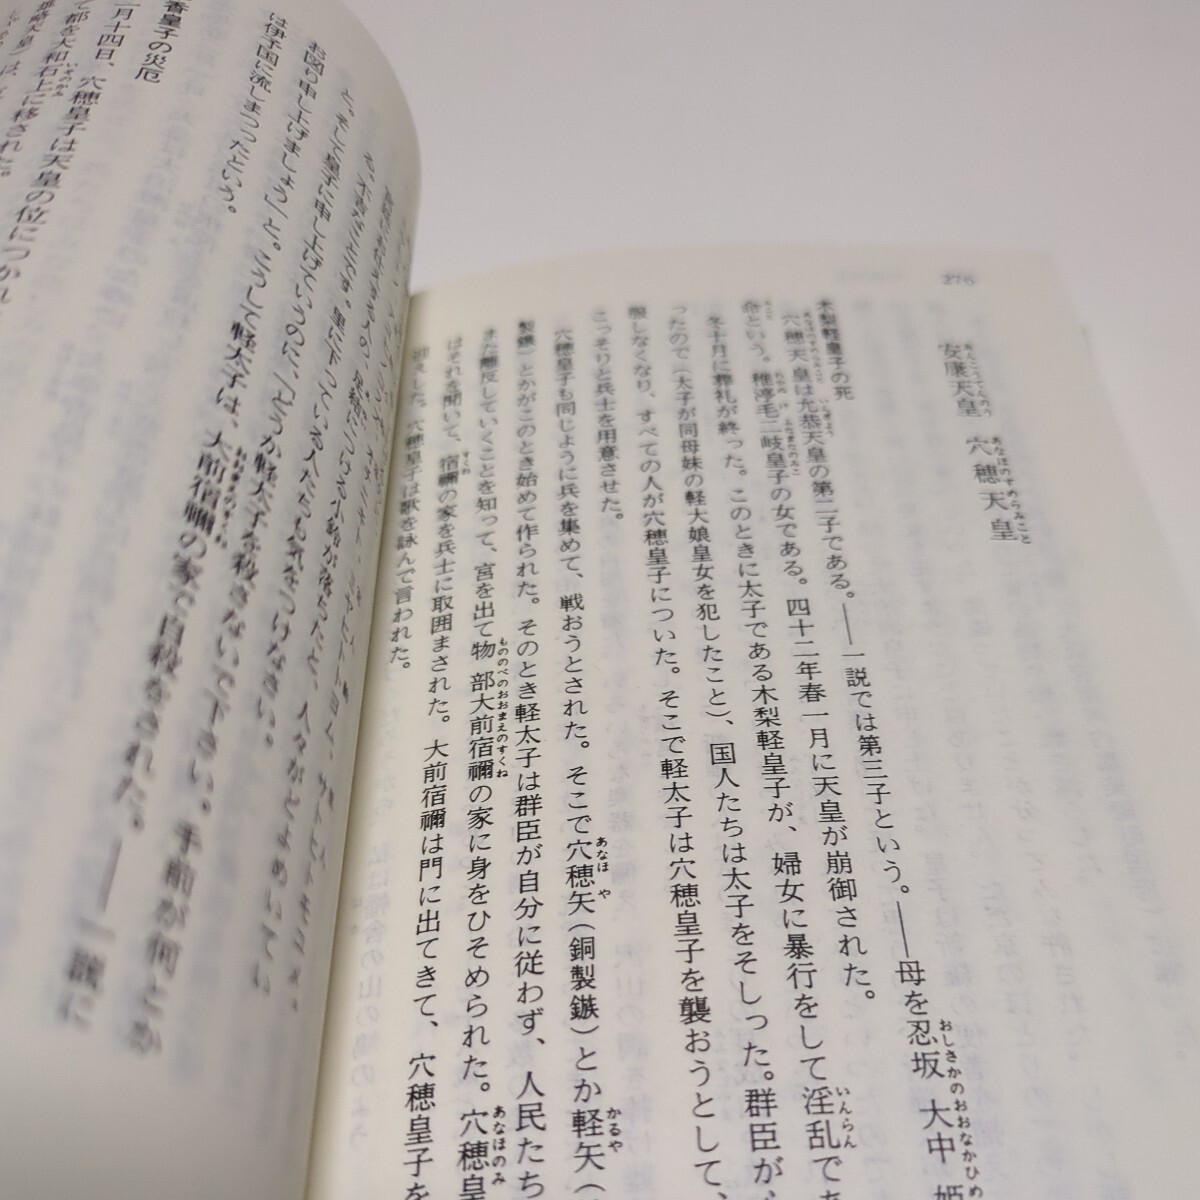 276
安康天皇 穴穂天皇
木梨軽皇子の死
穴穂天皇は允恭天皇の第二子である。――一説では第三子という。――母を忍坂大中姫
命という。稚渟毛二岐皇子の女である。四十二年春一月に天皇が崩御された。
冬十月に葬礼が終った。このときに太子である木梨軽皇子が、婦女に暴行をして淫乱であ
ったので(太子が同母妹の軽大娘皇女を犯したこと)、国人たちは太子をそしった。群臣が、
服しなくなり、すべての人が穴穂皇子についた。そこで軽太子は穴穂皇子を襲おうとして、
こっそりと兵士を用意させた。
穴穂皇子も同じように兵を集めて、戦おうとされた。そこで穴穂矢(銅製鏃)とか軽矢(
製鏃)とかがこのとき始めて作られた。そのとき軽太子は群臣が自分に従わず、人民たち
また離反していくことを知って、宮を出て物部大前宿禰の家に身をひそめられた。穴穂皇
はそれを聞いて、宿禰の家を兵士に取囲まされた。大前宿禰は門に出てきて、穴穂皇子を
迎えした。穴穂皇子は歌を詠んで言われた。
る。不吉なことです。里に下っている人たちも気をつけなさい。
と。そして皇子に申し上げていうのに、「どうか軽太子を殺さないで下さい。手前が何とか
お図り申し上げましょう」と。こうして軽太子は、大前宿禰の家で自殺をされた。――一説に
は伊予国に流しまつったという。
香皇子の災厄
月十四日、穴穂皇子は天皇の位につかれ
て都を大和石上に移された。